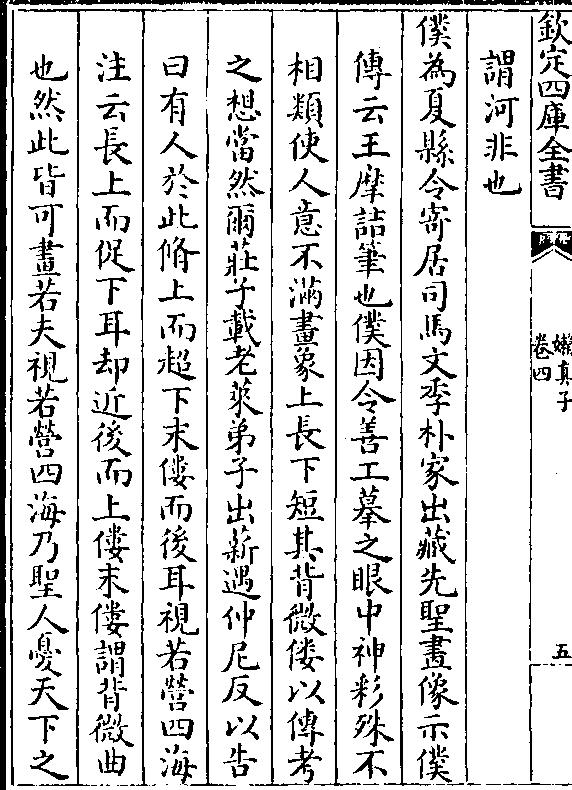 欽定四庫全書
嬾真子
卷四
五
謂河非也
僕為夏縣令寄居司馬文季朴家出藏先聖畫像示僕
傳云王摩詰筆也僕因令善工摹之眼中神彩殊不
相類使人意不滿畫象上長下短其背微僂以傳考
之想當然爾莊子載老萊弟子出薪遇仲尼反以告
曰有人於此脩上而趨下末僂而後耳視若營四海
注云長上而促下耳却近後而上僂末僂謂背微曲
也然此皆可畫若夫視若營四海乃聖人憂天下之